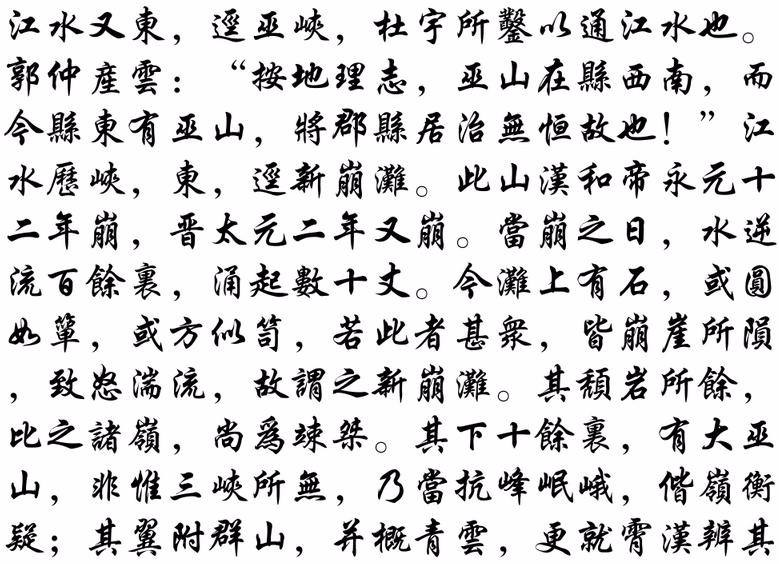 江水又東，逕巫峽，杜宇所鑿以通江水也。
郭仲產雲：“按地理志，巫山在縣西南，而
今縣東有巫山，將郡縣居治無恒故也！”江
水歷峽，東，逕新崩灘。此山漢和帝永元十
二年崩，晉太元二年又崩。當崩之日，水逆
流百餘裏，涌起數十丈。今灘上有石，或圓
如簞，或方似笥，若此者甚衆，皆崩崖所隕
，致怒湍流，故謂之新崩灘。其頹岩所餘，
比之諸嶺，尚爲竦桀。其下十餘裏，有大巫
山，非惟三峽所無，乃當抗峰岷峨，偕嶺衡
疑；其翼附群山，并概青雲，更就霄漢辨其